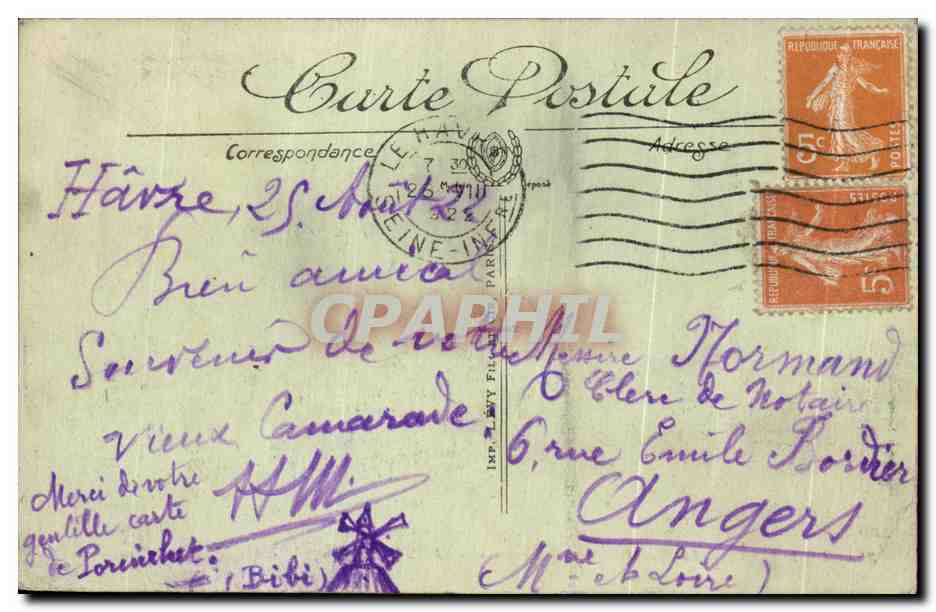 Carte Postale
Correspondance
Adresse
RÉPUBLIQUE FRANÇAISE
5c
POSTES
RÉPUBLIQUE FRANÇAISE
5c
POSTES
LE HAVRE
7 30
VIII
SEINE-INFRE
Hâvre, 25 Août 22
Bien amical
Souvenir de votre
vieux Camarade
HM.
Merci de votre
gentille carte
de Pornichet.
(Bibi)
IMP. LÉVY FILS PARIS
Messire Normand
Clerc de Notaire
6, rue Emile Bordier
Angers
(Mne et Loire)
CPAPHIL